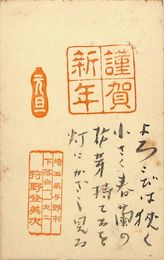 謹賀
新年
元旦
よろこびは狭く
小さく春蘭の
花芽持てるを
灯にかざし見る
埼玉県与野市
下落合一九二
狩野登美次